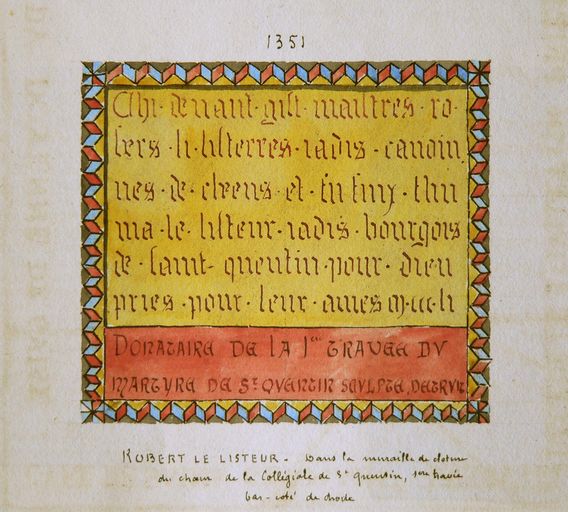 1351
Chi · devant · gist · maistres · ro ·
bers · li · listerres · iadis · canoin
nes · de · cheens · et ·
ma · le · listeur · iadis · bourgois
de · saint · quentin · pour · dieu
pries · pour · leur · ames
DONATAIRE DE LA 1ère TRAVEE DU
MARTYRE DE St QUENTIN SCULPTE, DETRUIT
ROBERT LE LISTEUR - Dans la muraille de cloture
du chœur de la Collégiale de St Quentin, travée
bas-coté de droite